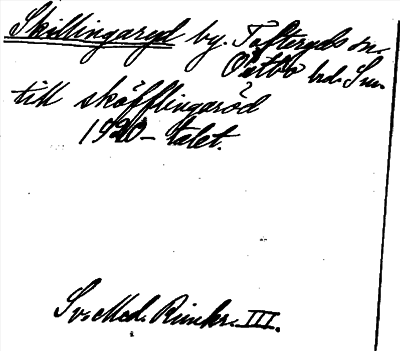 Skillingaryd by. Tofteryds sn.
Östbo hd. Sm.
till sköfflingaröd
1920-talet.
Sv. Med. Rimkr. III.